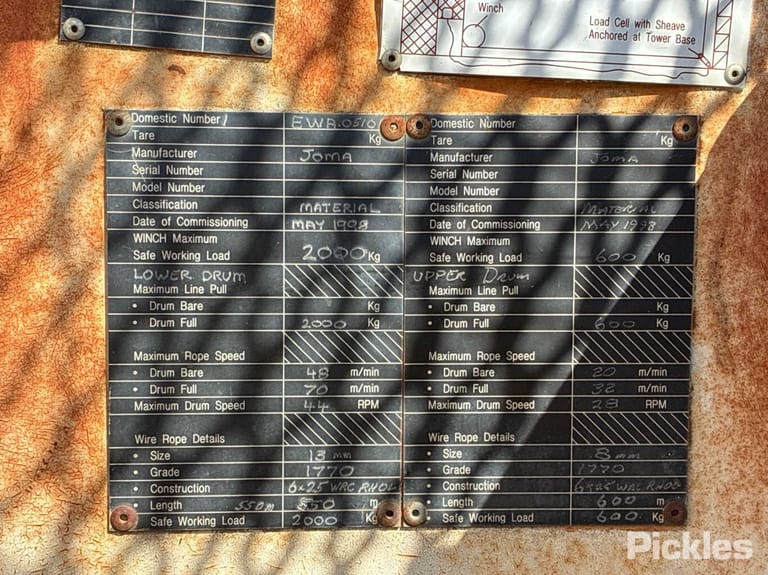 Winch
Load Cell with Sheave
Anchored at Tower Base
Domestic Number EWA.0510
Tare Kg
Manufacturer JOMA
Serial Number
Model Number
Classification MATERIAL
Date of Commissioning MAY 1998
WINCH Maximum
Safe Working Load 2000 Kg
LOWER DRUM
Maximum Line Pull
• Drum Bare Kg
• Drum Full 2000 Kg
Maximum Rope Speed
• Drum Bare 48 m/min
• Drum Full 70 m/min
Maximum Drum Speed 44 RPM
Wire Rope Details
• Size 13 mm
• Grade 1770
• Construction 6x25 WRC RHOL
• Length 550m 550 m
• Safe Working Load 2000 Kg
Domestic Number
Tare Kg
Manufacturer JOMA
Serial Number
Model Number
Classification MATERIAL
Date of Commissioning MAY 1998
WINCH Maximum
Safe Working Load 600 Kg
UPPER Drum
Maximum Line Pull
• Drum Bare Kg
• Drum Full 600 Kg
Maximum Rope Speed
• Drum Bare 20 m/min
• Drum Full 32 m/min
Maximum Drum Speed 28 RPM
Wire Rope Details
• Size 8 mm
• Grade 1770
• Construction
• Length 600 m
• Safe Working Load 600 Kg
Pickles